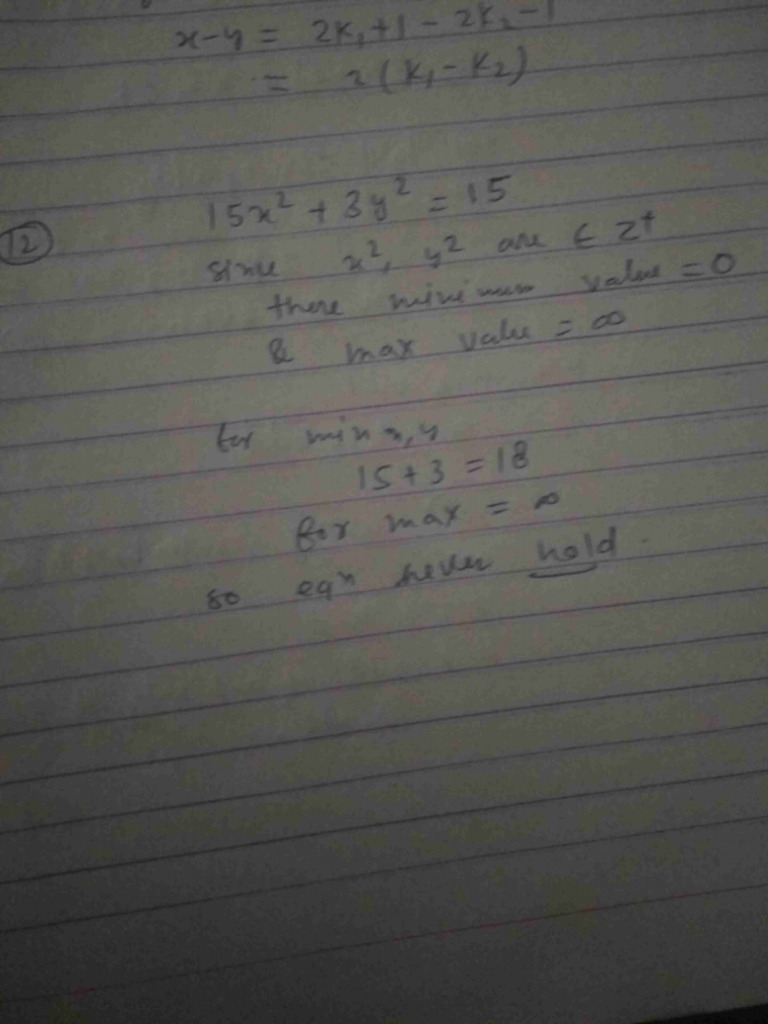 x-y = 2k₁+1 - 2k₂-1
= 2(k₁-k₂)
12
15x² + 3y² = 15
since x², y² are ∈ Z⁺
there minimum value = 0
& max value = ∞
for min x, y
15+3 = 18
for max = ∞
so eqⁿ never hold.